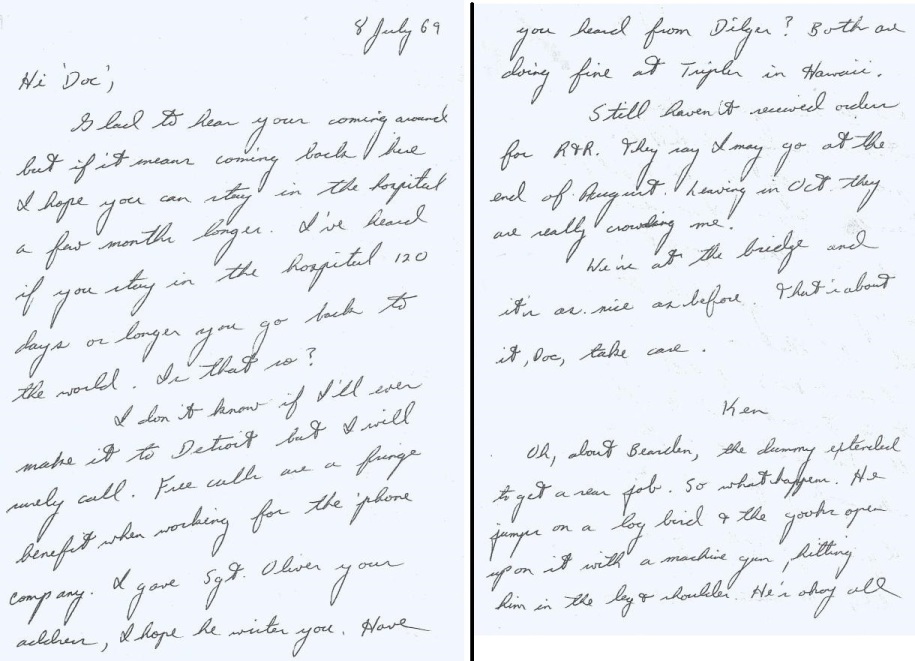 8 July 69
Hi 'Doc',
Glad to hear your coming around
but if it means coming back here
I hope you can stay in the hospital
a few months longer. I've heard
if you stay in the hospital 120
days or longer you go back to
the world. Is that so?
I don't know if I'll ever
make it to Detroit but I will
surely call. Free calls are a fringe
benefit when working for the 'phone
company. I gave Sgt. Oliver your
address, I hope he writes you. Have
you heard from Dilger? Both are
doing fine at Tripler in Hawaii.
Still haven't received orders
for R&R. They say I may go at the
end of August. Leaving in Oct. they
are really crowding me.
We're at the bridge and
it's as nice as before. That's about
it, Doc, take care.
Ken
Oh, about Bearden, the dummy extended
to get a rear job. So what happens. He
jumps on a log bird & the gooks open
up on it with a machine gun, hitting
him in the leg & shoulder. He's okay all